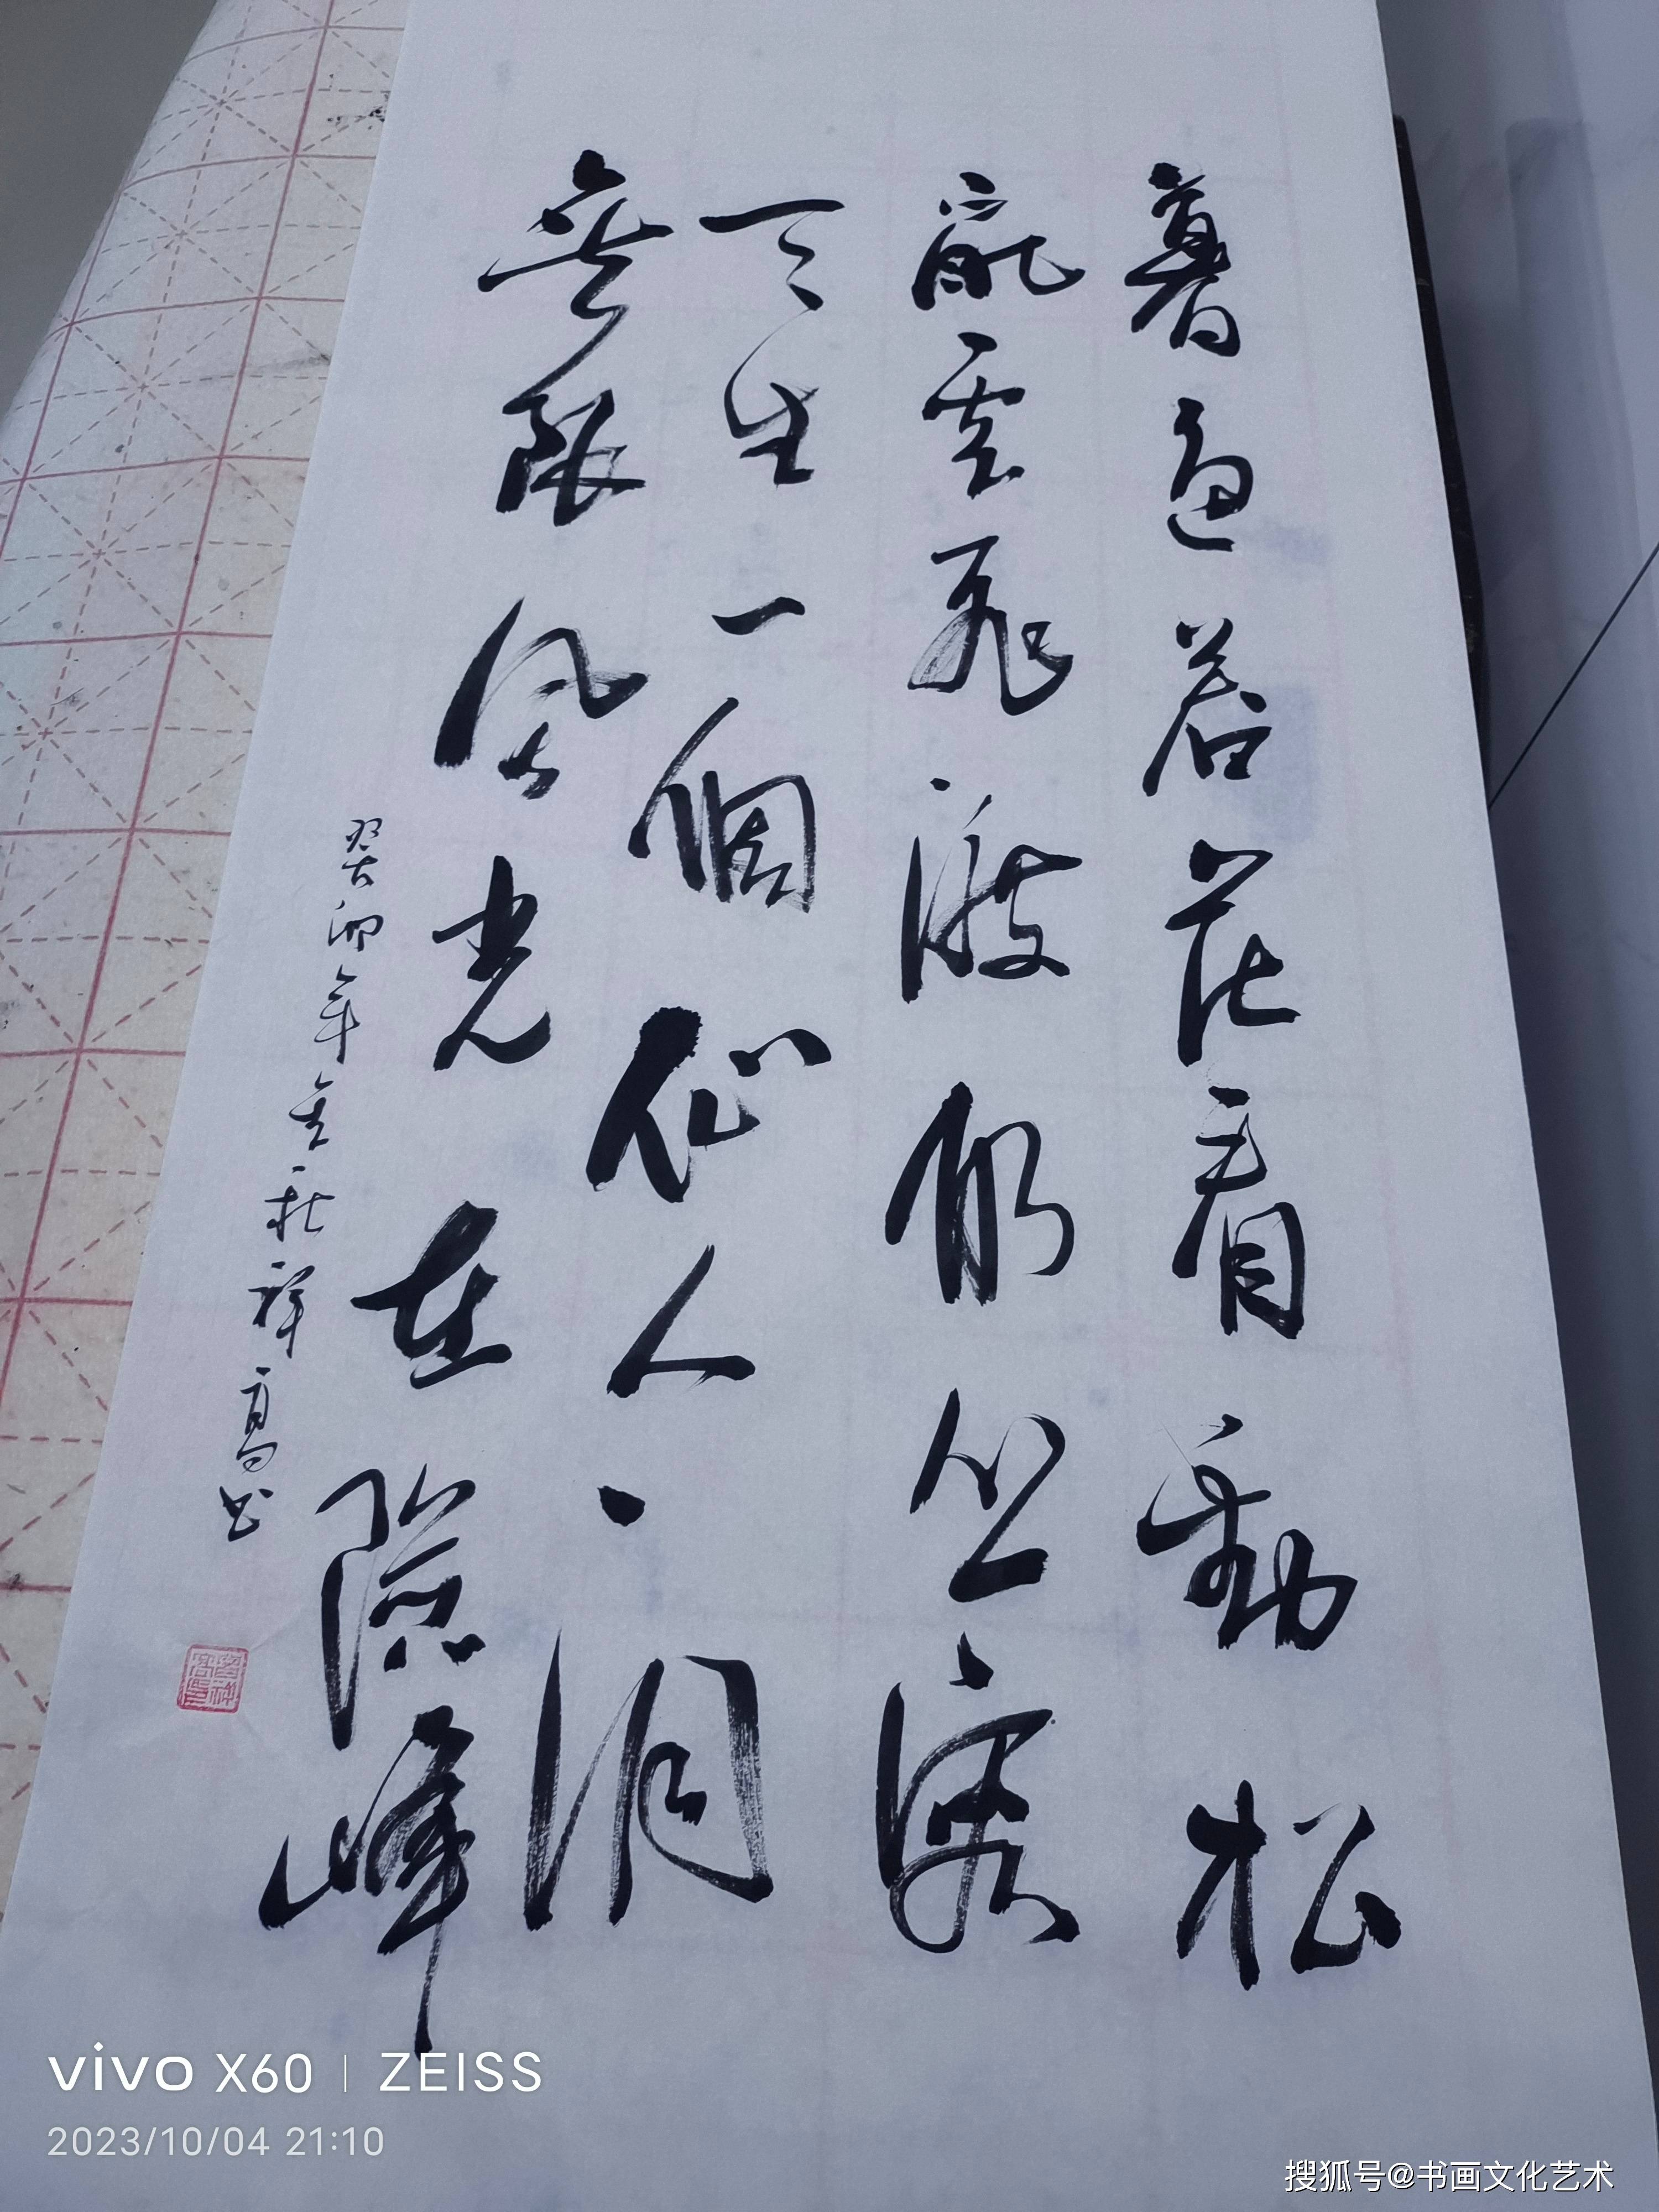 暮色蒼茫看勁松
亂雲飛渡仍從容
天生一個仙人洞
無限風光在險峰
癸卯年金秋祥高书
vivo X60 | ZEISS
2023/10/04 21:10
搜狐号@书画文化艺术